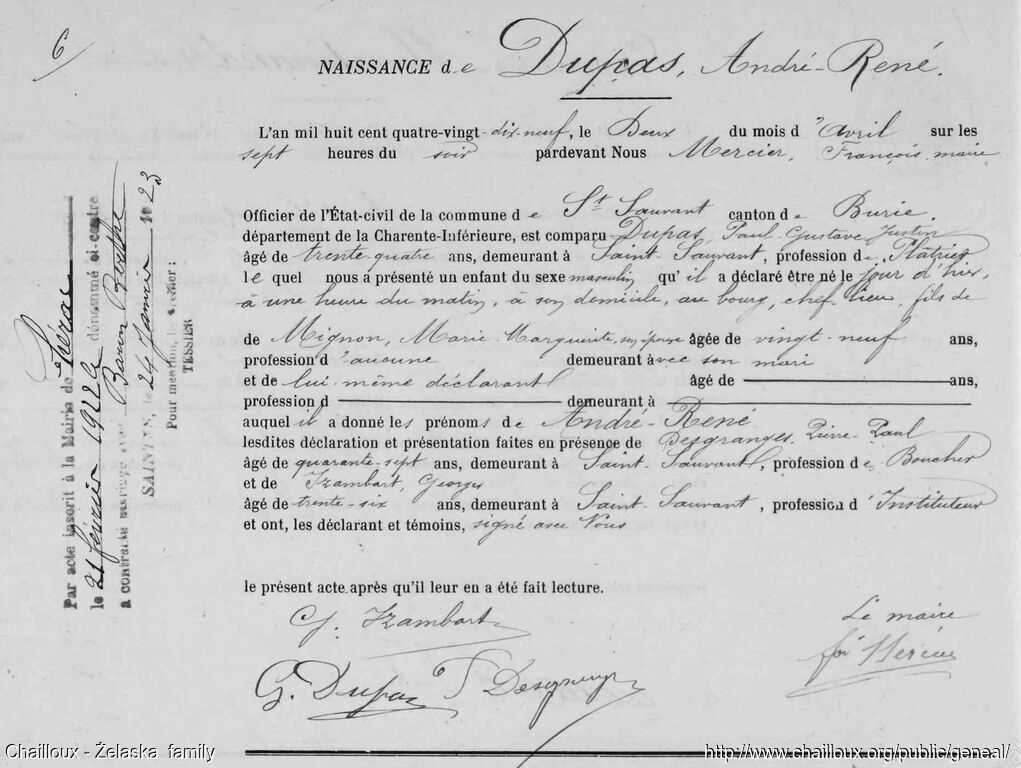 6
NAISSANCE de Dupas, André-René.
L'an mil huit cent quatre-vingt-dix-neuf, le Deux du mois d'Avril sur les
sept heures du soir pardevant Nous Mercier, François, maire
Officier de l'État-civil de la commune de St Sauvant canton de Burie.
département de la Charente-Inférieure, est comparu Dupas, Paul-Gustave-Justin
âgé de trente-quatre ans, demeurant à Saint-Sauvant, profession de Plâtrier,
le quel nous a présenté un enfant du sexe masculin, qu'il a déclaré être né le jour d'hui,
à une heure du matin, à son domicile, au bourg, chef-lieu, fils de
de Mignon, Marie-Marguerite, son épouse âgée de vingt-neuf ans,
profession d'aucune demeurant avec son mari
et de lui-même déclarant âgé de ans,
profession d demeurant à
auquel il a donné les prénoms de André-René
lesdites déclaration et présentation faites en présence de Desgranges, Pierre-Paul
âgé de quarante-sept ans, demeurant à Saint-Sauvant, profession de Boucher
et de Izambart, Georges
âgé de trente-six ans, demeurant à Saint-Sauvant, profession d'Instituteur
et ont, les déclarant et témoins, signé avec Nous
le présent acte après qu'il leur en a été fait lecture.
G. Izambart
Le maire
G. Dupas
Par acte inscrit à la Mairie de
le 21 février 1922 le dénommé ci-contre
a contracté mariage avec
SAINTES, le 24 Janvier 1923
Pour mention, le Greffier :
TESSIER
Chailloux - Želaska family
http://www.chailloux.org/public/geneal/